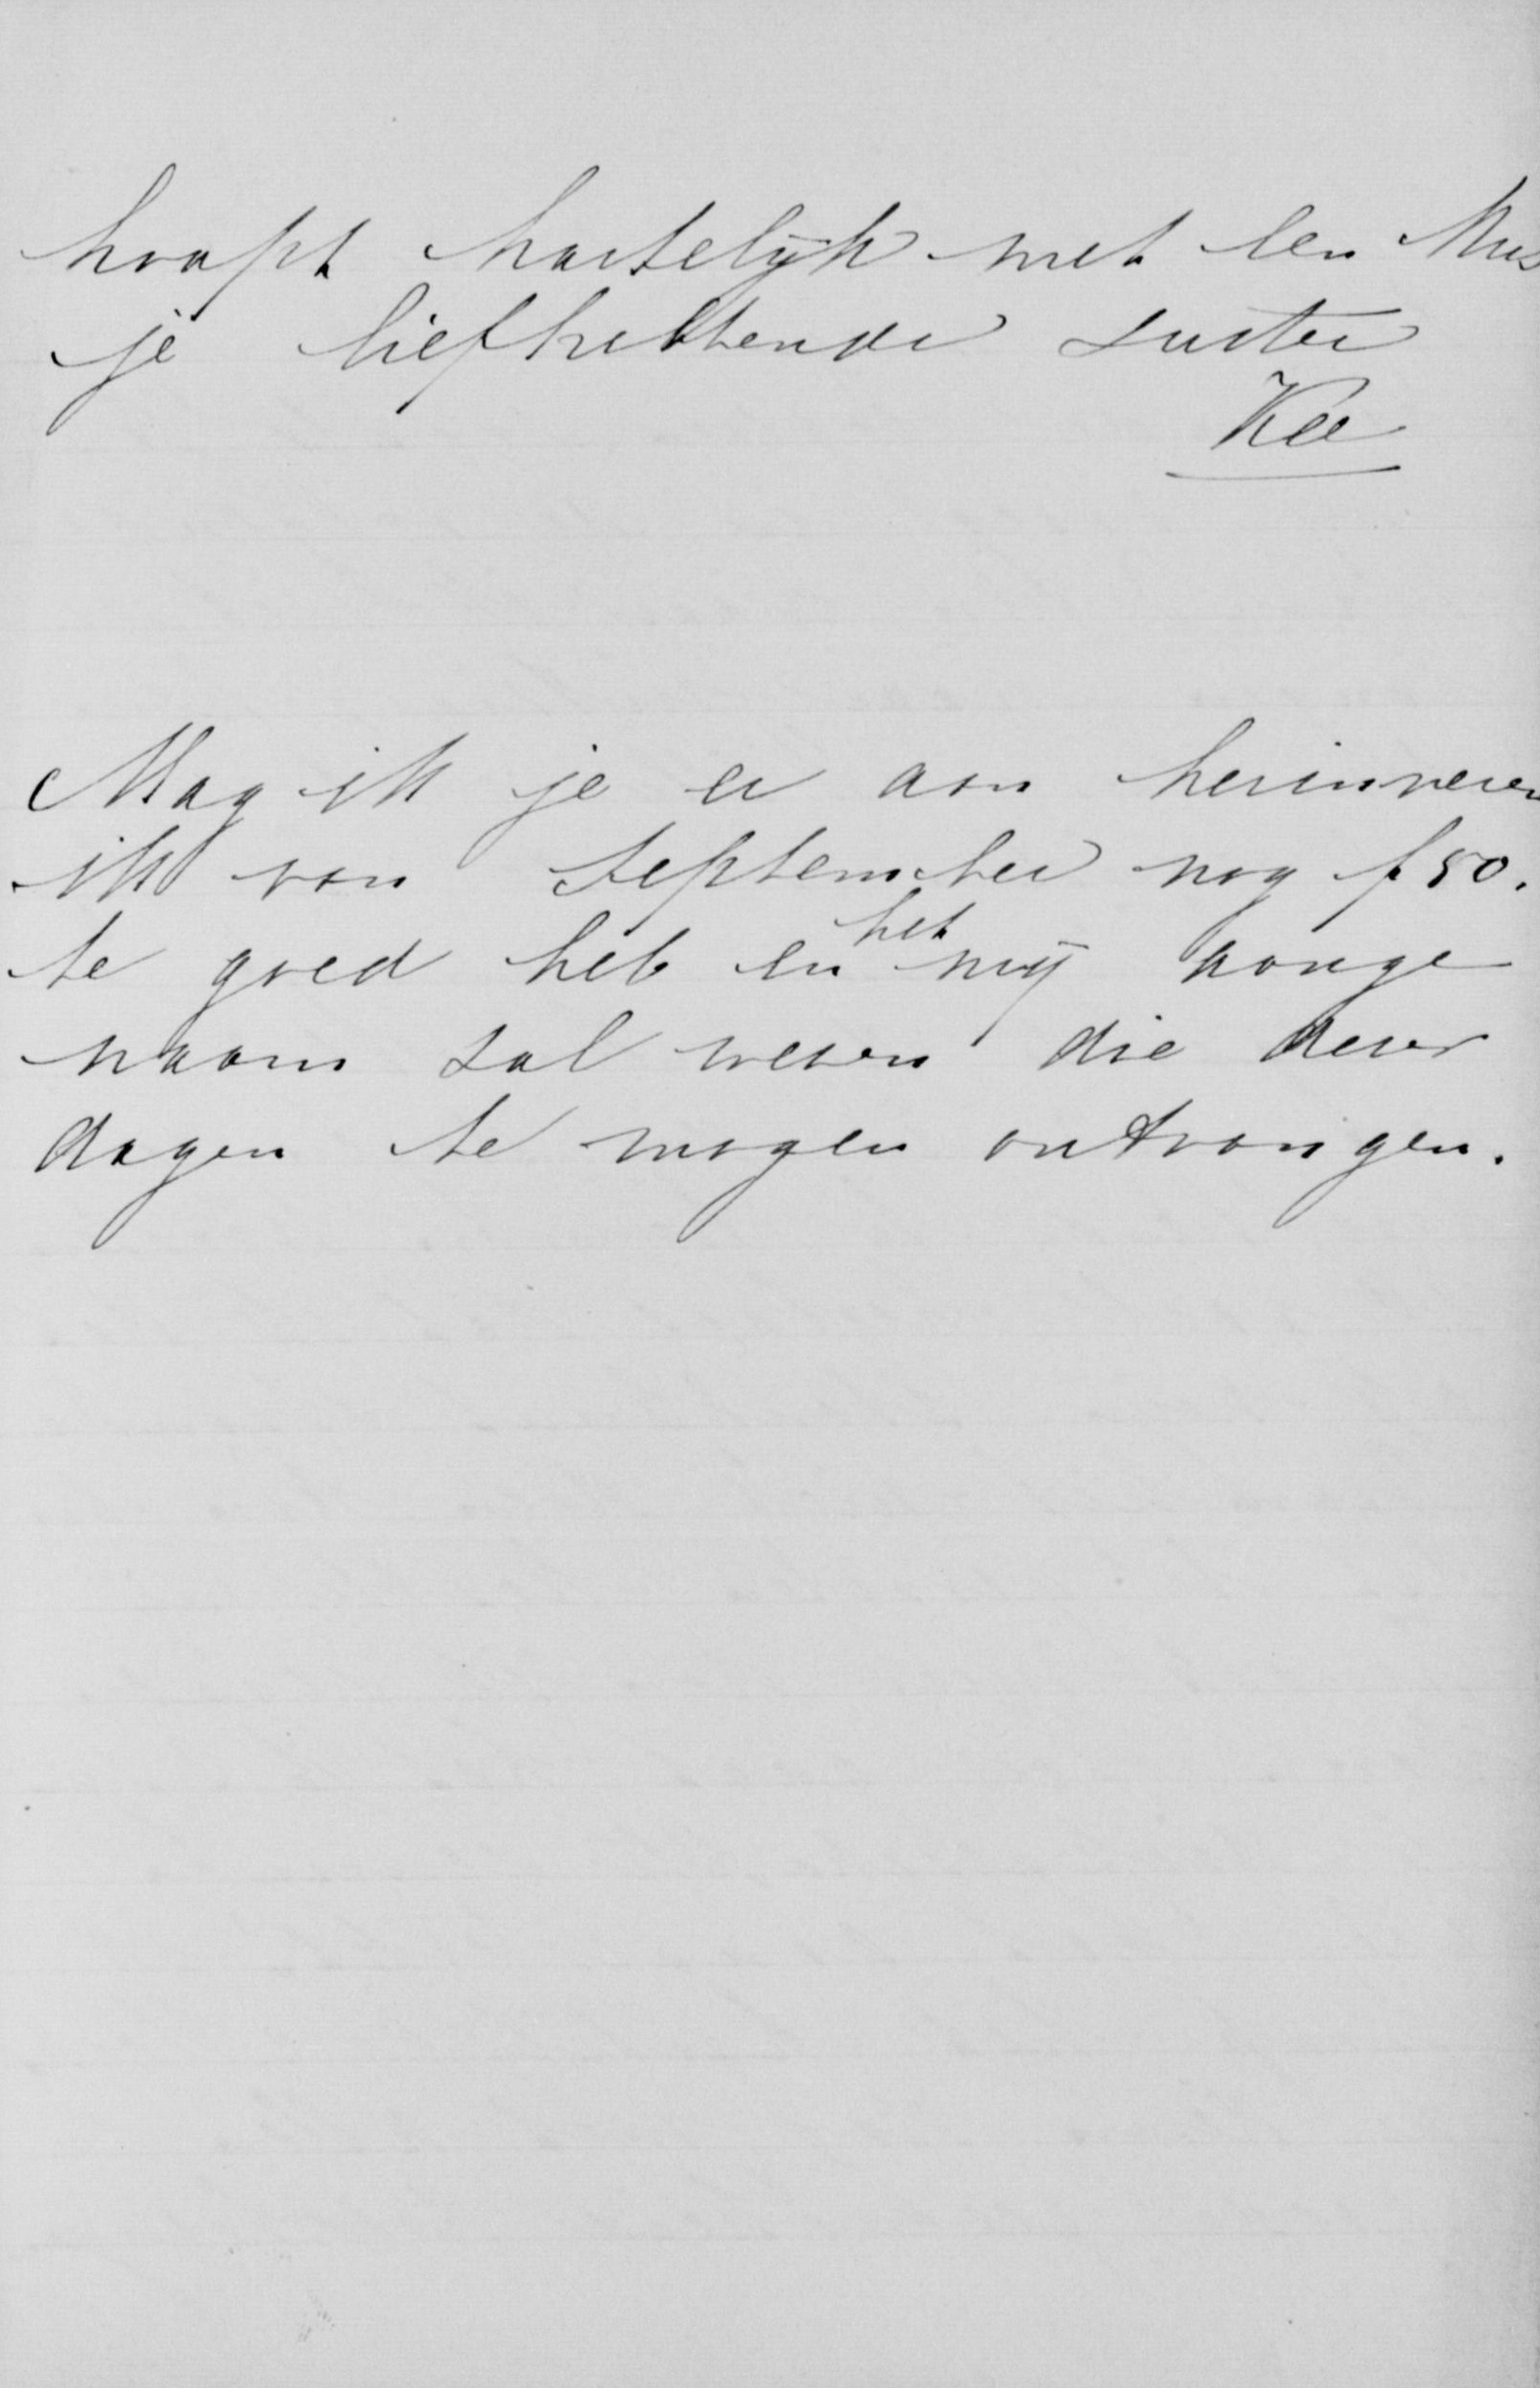 hoopt hartelijk met een kus
je liefhebbende zuster
Kee
Mag ik je er aan herinneren
ik van September nog f 50.
te goed heb en het mij aange
naam zal wezen die dezer
dagen te mogen ontvangen.